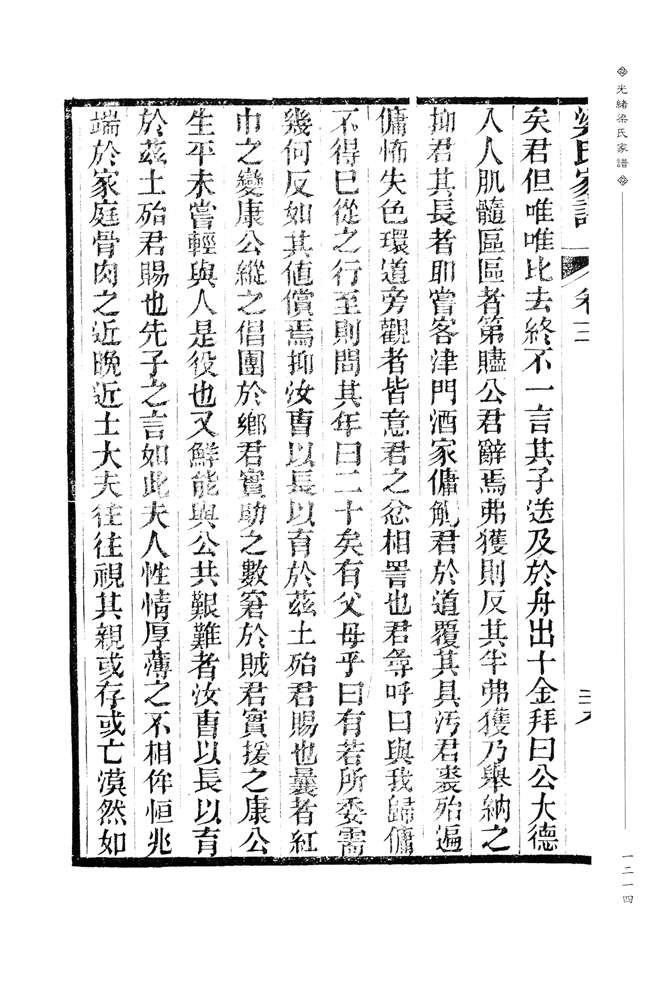 光緒梁氏家譜
一二一四
梁氏家譜 卷三
矣君但唯唯比去終不一言其子送及於舟出十金拜曰公大德
入人肌髓區區者第贐公君辭焉弗獲則反其半弗獲乃舉納之
抑君其長者耶嘗客津門酒家傭觸君於道覆其具汚君裘殆遍
傭怖失色環道旁觀者皆意君之忿相詈也君尋呼曰與我歸傭
不得已從之行至則問其年曰二十矣有父母乎曰有若所委需
幾何反如其值償焉抑汝曹以長以育於茲土殆君賜也曩者紅
巾之變康公縱之倡團於鄉君實助之數窘於賊君實援之康公
生平未嘗輕與人是役也又鮮能與公共艱難者汝曹以長以育
於茲土殆君賜也先子之言如此夫人性情厚薄之不相侔恒兆
端於家庭骨肉之近晚近士大夫往往視其親或存或亡漠然如